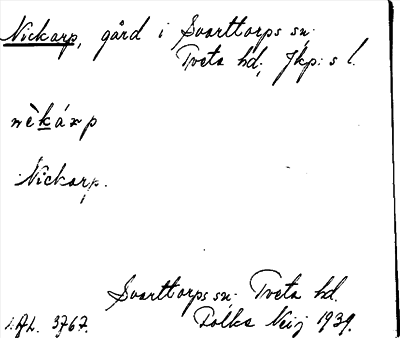 Nickarp, gård i Svarttorps sn.
Tveta hd, Jkp: s l.
nèkárp
Nickarp.
Svarttorps sn. Tveta hd.
3767. Folke Neij 1939.